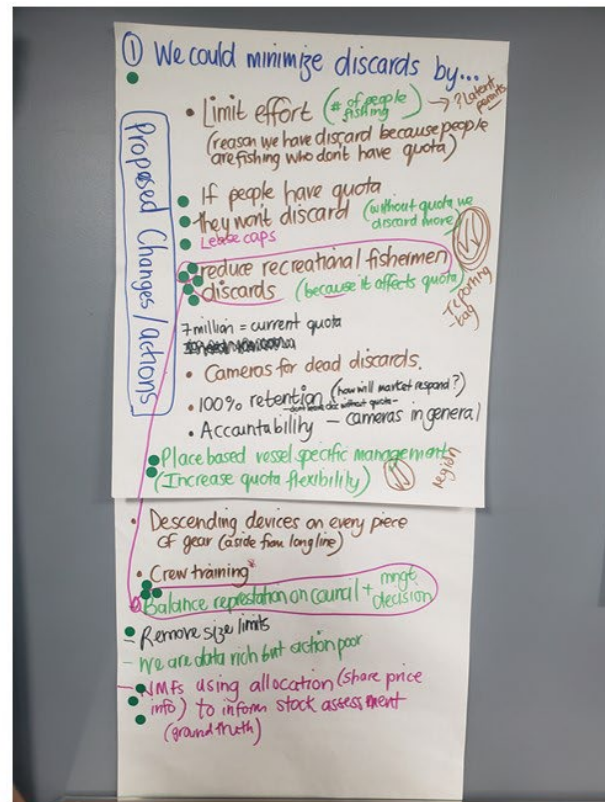 ① We could minimize discards by...
Proposed Changes/actions
• Limit effort (# of people fishing) → ? Latent permits
(reason we have discard because people
are fishing who dont have quota)
• If people have quota
they won't discard (without quota we
discard more)
Lease caps
reduce recreational fishermen
discards (because it affects quota)
- reporting
- tag
7 million = current quota
• Cameras for dead discards.
• 100% retention (how will market respond?)
• Accountability – cameras in general
• Place based vessel specific management
(Increase quota flexibility)
region
• Descending devices on every piece
of gear (aside from longline)
• Crew training*
Balance represtation on council + mngt
decision
– Remove size limits
– We are data rich but action poor
– NMFs using allocation (share price
info) to inform stock assessment
(ground truth)